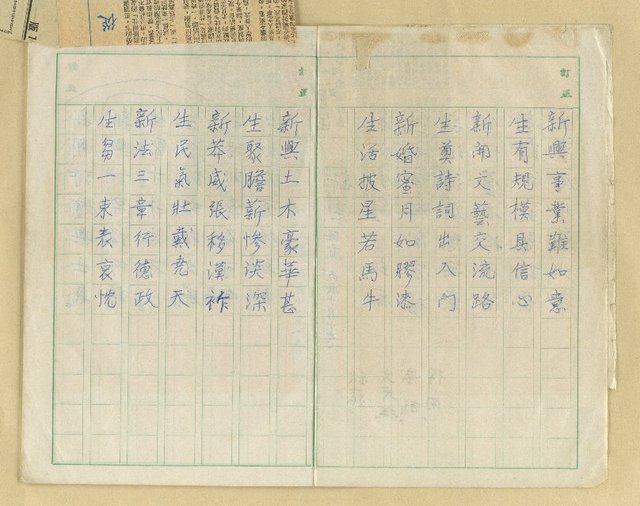 訂正
新興事業難如意
生有規模具信心
新開文藝交流路
生奠詩詞出入門
新婚蜜月如膠漆
生活披星若馬牛
訂正
新興土木豪華甚
生聚膽薪慘淡深
新莽威張移漢祚
生民氣壯戴堯天
新法三章行德政
生芻一束表哀忱
從